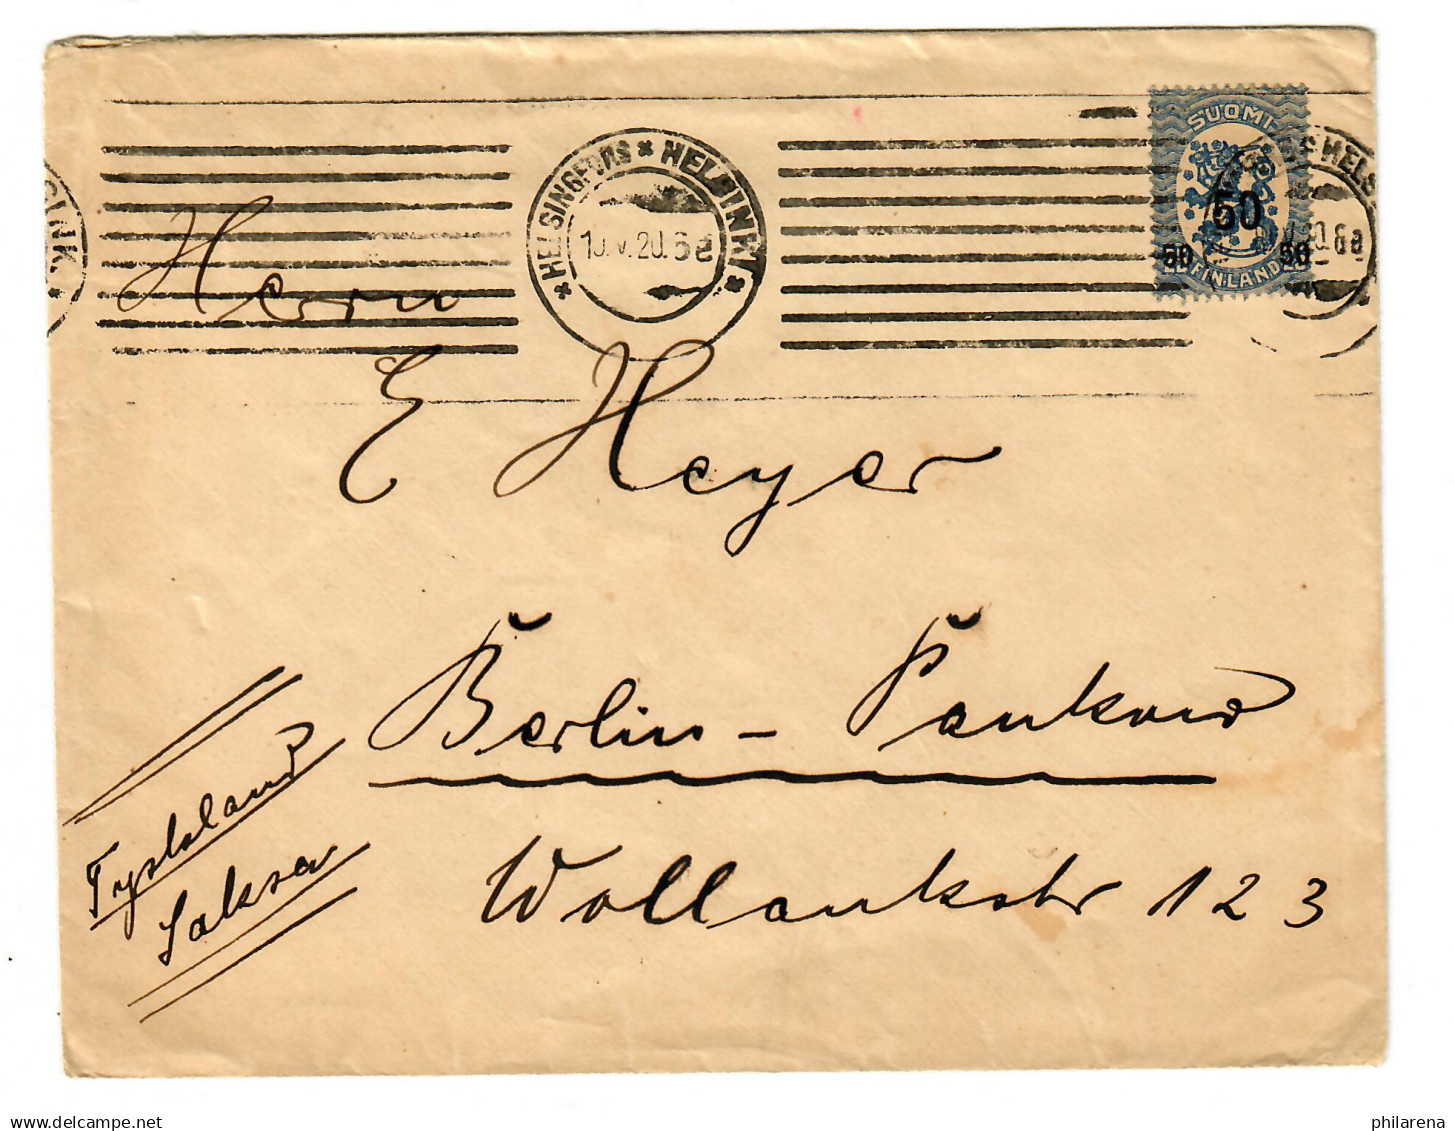 HELSINGFORS * HELSINKI *
10.V.20.6a
SUOMI
50
50 50
FINLAND
Herrn
E Heyer
Berlin - Pankow
Wollankstr 123
Tyskland
Saksa
delcampe.net
philarena